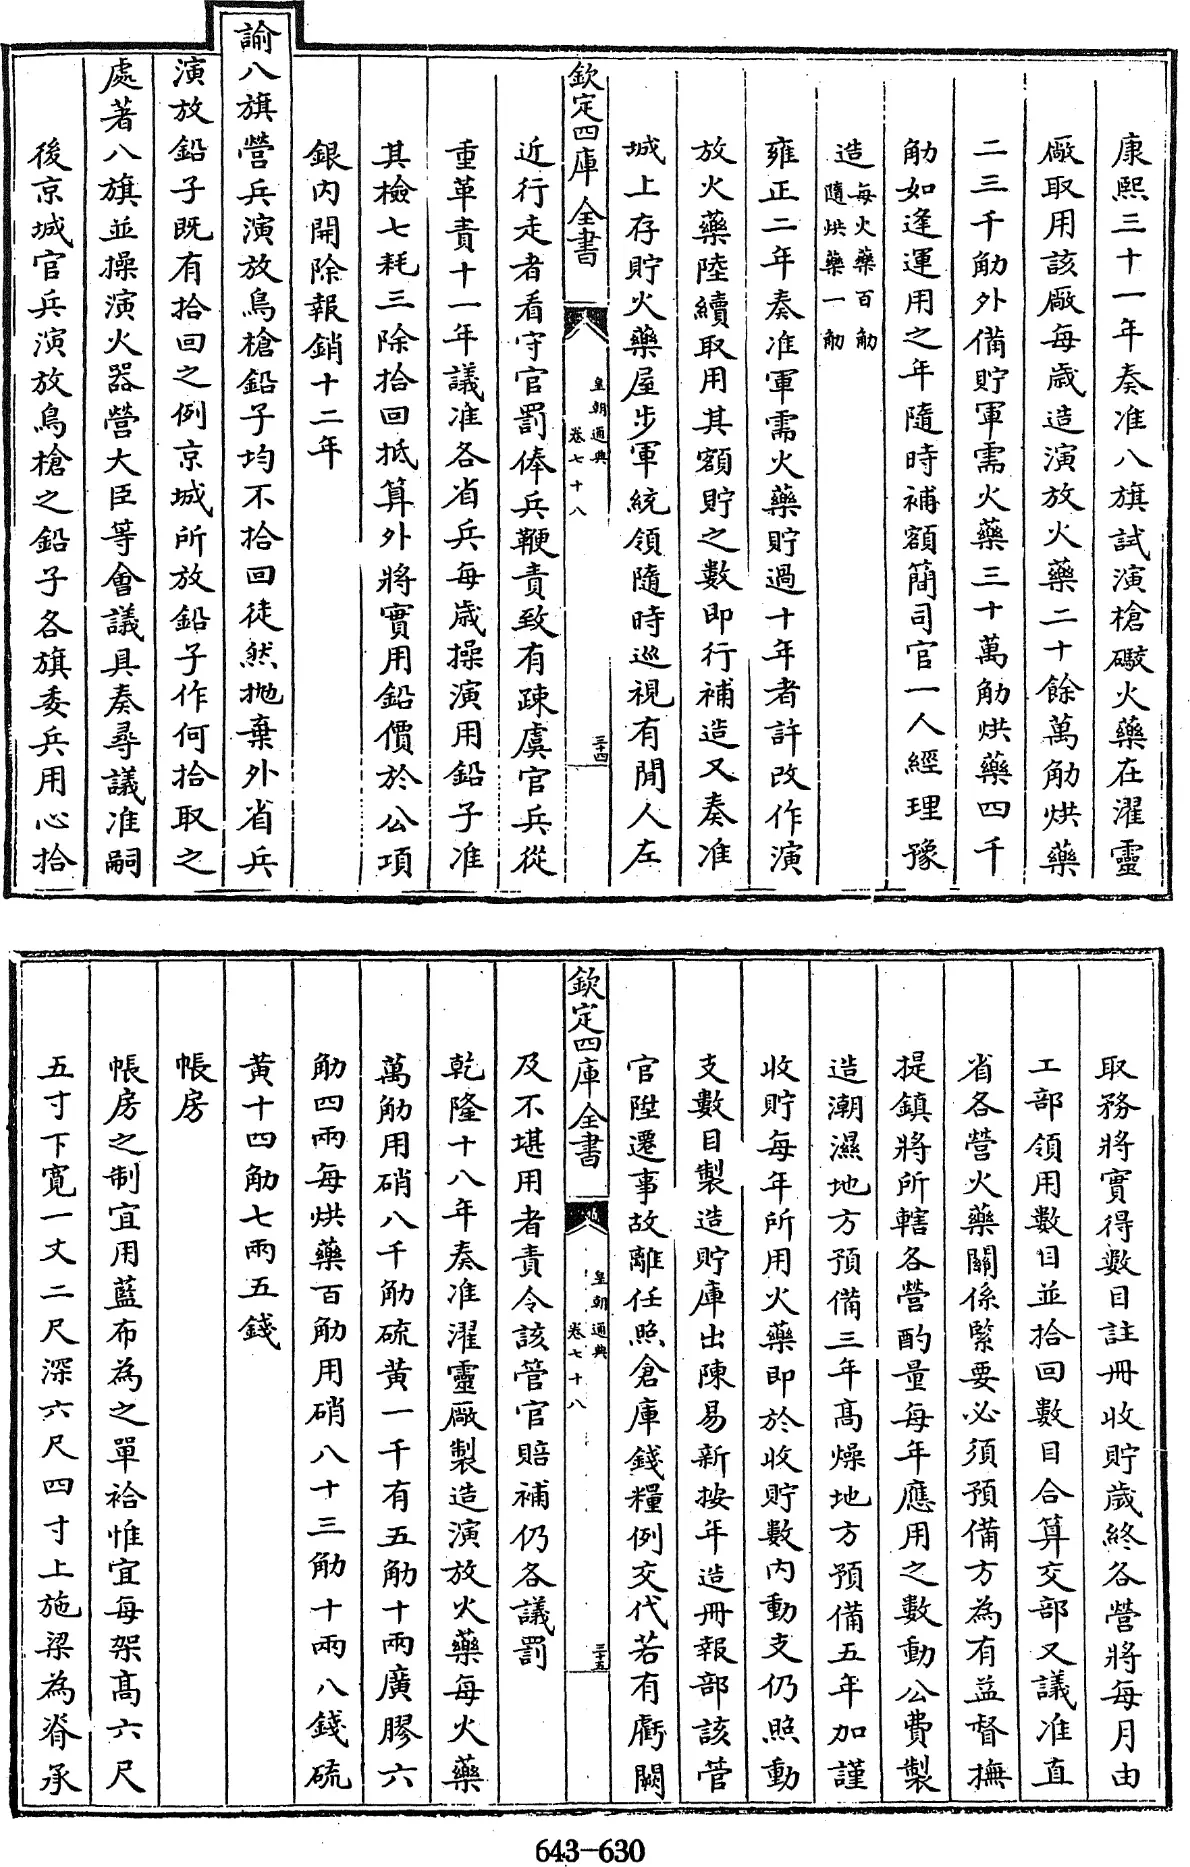 康熙三十一年奏准八旗試演槍礮火藥在濯靈
廠取用該廠每歲造演放火藥二十餘萬觔烘藥
二三千觔外備貯軍需火藥三十萬觔烘藥四千
觔如逢運用之年隨時補額簡司官一人經理豫
造每火藥百觔
隨烘藥一觔
雍正二年奏准軍需火藥貯過十年者許改作演
放火藥陸續取用其額貯之數即行補造又奏准
城上存貯火藥屋步軍統領隨時巡視有閒人左
欽定四庫全書
皇朝通典
卷七十八
三十四
近行走者看守官罰俸兵鞭責致有疎虞官兵從
重革責十一年議准各省兵每歲操演用鉛子准
其檢七耗三除拾回抵算外將實用鉛價於公項
銀內開除報銷十二年
諭八旗營兵演放鳥槍鉛子均不拾回徒然拋棄外省兵
演放鉛子既有拾回之例京城所放鉛子作何拾取之
處著八旗並操演火器營大臣等會議具奏尋議准嗣
後京城官兵演放鳥槍之鉛子各旗委兵用心拾
取務將實得數目註冊收貯歲終各營將每月由
工部領用數目並拾回數目合算交部又議准直
省各營火藥關係緊要必須預備方為有益督撫
提鎮將所轄各營酌量每年應用之數動公費製
造潮濕地方預備三年高燥地方預備五年加謹
收貯每年所用火藥即於收貯數內動支仍照動
支數目製造貯庫出陳易新按年造冊報部該管
官陞遷事故離任照倉庫錢糧例交代若有虧闕
欽定四庫全書
皇朝通典
卷七十八
三十五
及不堪用者責令該管官賠補仍各議罰
乾隆十八年奏准濯靈廠製造演放火藥每火藥
萬觔用硝八千觔硫黃一千有五觔十兩廣膠六
觔四兩每烘藥百觔用硝八十三觔十兩八錢硫
黃十四觔七兩五錢
帳房
帳房之制宜用藍布為之單袷惟宜每架高六尺
五寸下寬一丈二尺深六尺四寸上施梁為脊承
643-630